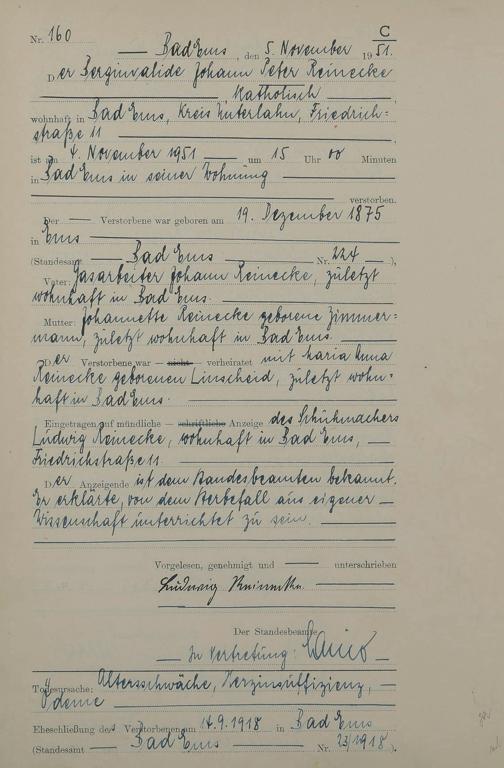 C
Nr. 160
Bad Ems, den 5. November 1951.
Der Berginvalide Johann Peter Reinecke
, Katholisch,
wohnhaft in Bad Ems, Kreis Unterlahn, Friedrich=
straße 11,
ist am 4. November 1951 um 15 Uhr 00 Minuten
in Bad Ems in seiner Wohnung
verstorben.
Der Verstorbene war geboren am 19. Dezember 1875
in Ems
(Standesamt Bad Ems Nr. 224),
Vater: Gasarbeiter Johann Reinecke, zuletzt
wohnhaft in Bad Ems.
Mutter: Johannette Reinecke geborene Zimmer=
mann, zuletzt wohnhaft in Bad Ems.
Der Verstorbene war — nicht — verheiratet mit Maria Anna
Reinecke geborenen Linscheid, zuletzt wohn=
haft in Bad Ems.
Eingetragen auf mündliche — schriftliche — Anzeige des Schuhmachers
Ludwig Reinecke, wohnhaft in Bad Ems,
Friedrichstraße 11.
Der Anzeigende ist dem Standesbeamten bekannt.
Er erklärte, von dem Sterbefall aus eigener
Wissenschaft unterrichtet zu sein.
Vorgelesen, genehmigt und unterschrieben
Ludwig Reinecke.
Der Standesbeamte
In Vertretung:
Todesursache: Altersschwäche, Herzinsuffizienz,
Ödeme
Eheschließung des Verstorbenen am 14.9.1918 in Bad Ems
(Standesamt Bad Ems Nr. 23/1918).